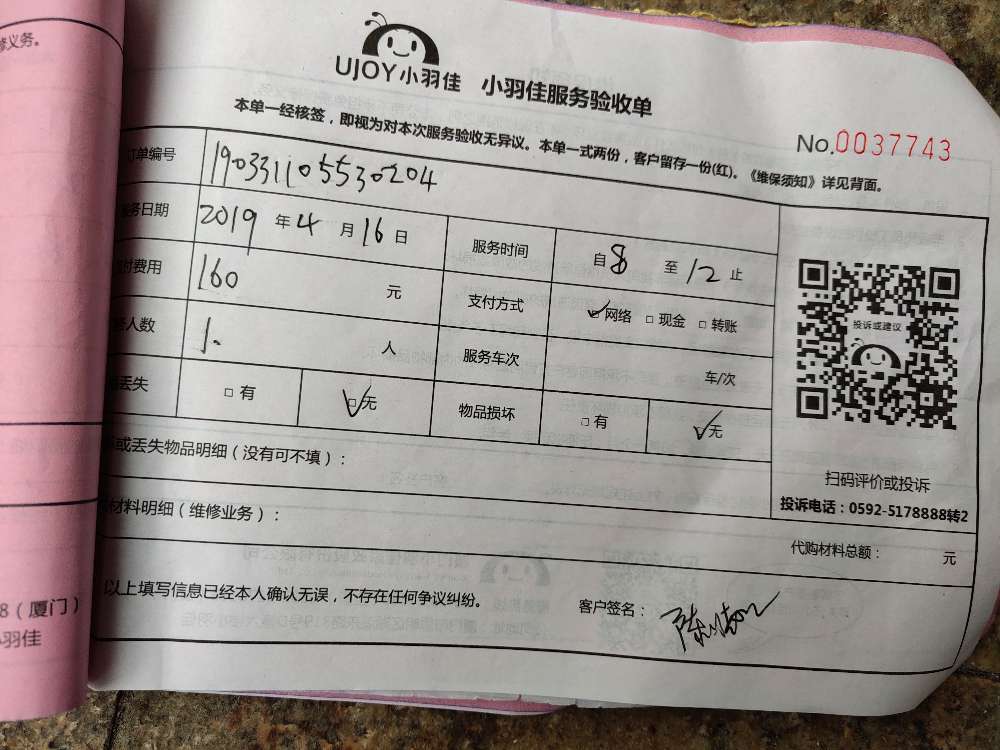 修义务。
UJOY小羽佳 小羽佳服务验收单
本单一经核签，即视为对本次服务验收无异议。本单一式两份，客户留存一份(红)。《维保须知》详见背面。
No.0037743
订单编号 190331105530204
务日期 2019 年 4 月 16 日 服务时间 自 8 至 12 止
付费用 160 元 支付方式 ☑网络 □现金 □转账
人数 1. 人 服务车次 车/次
丢失 □有 ☑无 物品损坏 □有 ☑无
或丢失物品明细（没有可不填）：
材料明细（维修业务）：
代购材料总额： 元
投诉或建议
扫码评价或投诉
投诉电话：0592-5178888转2
以上填写信息已经本人确认无误，不存在任何争议纠纷。 客户签名：
8（厦门）
羽佳